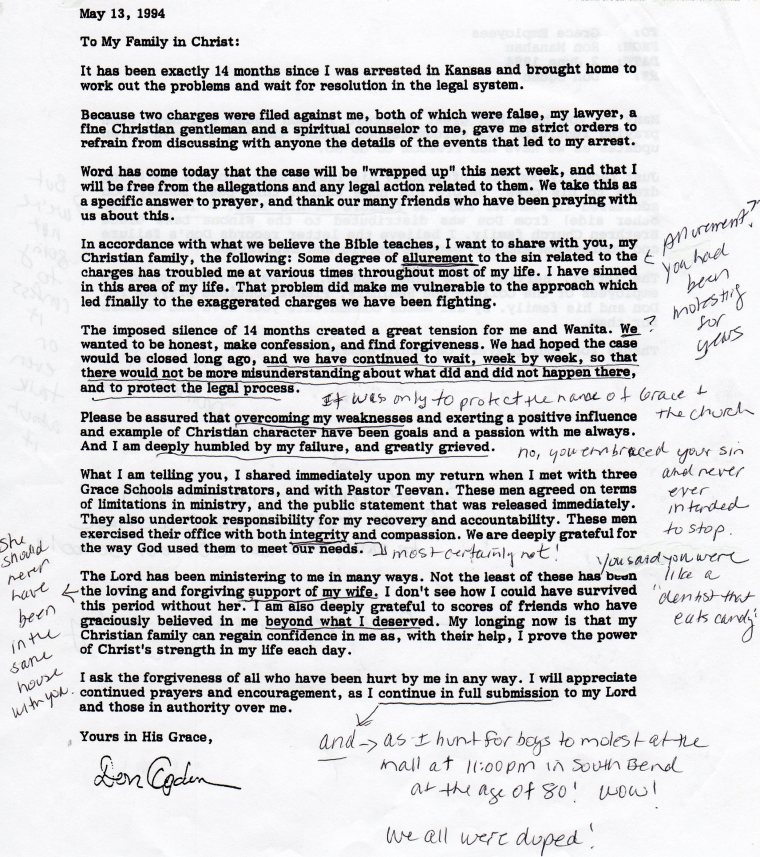 May 13, 1994
To My Family in Christ:
It has been exactly 14 months since I was arrested in Kansas and brought home to
work out the problems and wait for resolution in the legal system.
Because two charges were filed against me, both of which were false, my lawyer, a
fine Christian gentleman and a spiritual counselor to me, gave me strict orders to
refrain from discussing with anyone the details of the events that led to my arrest.
Word has come today that the case will be "wrapped up" this next week, and that I
will be free from the allegations and any legal action related to them. We take this as
a specific answer to prayer, and thank our many friends who have been praying with
us about this.
In accordance with what we believe the Bible teaches, I want to share with you, my
Christian family, the following: Some degree of allurement to the sin related to the
charges has troubled me at various times throughout most of my life. I have sinned
in this area of my life. That problem did make me vulnerable to the approach which
led finally to the exaggerated charges we have been fighting.
Allurement?
You had
been
molesting
for
years
The imposed silence of 14 months created a great tension for me and Wanita. We ?
wanted to be honest, make confession, and find forgiveness. We had hoped the case
would be closed long ago, and we have continued to wait, week by week, so that
there would not be more misunderstanding about what did and did not happen there,
and to protect the legal process.
It was only to protect the name of Grace +
the church
Please be assured that overcoming my weaknesses and exerting a positive influence
and example of Christian character have been goals and a passion with me always.
And I am deeply humbled by my failure, and greatly grieved.
no, you embraced your sin
and never
ever
intended
to stop.
What I am telling you, I shared immediately upon my return when I met with three
Grace Schools administrators, and with Pastor Teevan. These men agreed on terms
of limitations in ministry, and the public statement that was released immediately.
They also undertook responsibility for my recovery and accountability. These men
exercised their office with both integrity and compassion. We are deeply grateful for
the way God used them to meet our needs.
most certainly not!
You said you were
like a
"dentist that
eats candy"
The Lord has been ministering to me in many ways. Not the least of these has been
the loving and forgiving support of my wife. I don't see how I could have survived
this period without her. I am also deeply grateful to scores of friends who have
graciously believed in me beyond what I deserved. My longing now is that my
Christian family can regain confidence in me as, with their help, I prove the power
of Christ's strength in my life each day.
She
should
never
have
been
in the
same
house
with you.
I ask the forgiveness of all who have been hurt by me in any way. I will appreciate
continued prayers and encouragement, as I continue in full submission to my Lord
and those in authority over me.
Yours in His Grace,
Don Ogden
and → as I hunt for boys to molest at the
mall at 11:00pm in South Bend
at the age of 80! wow!
We all were duped!